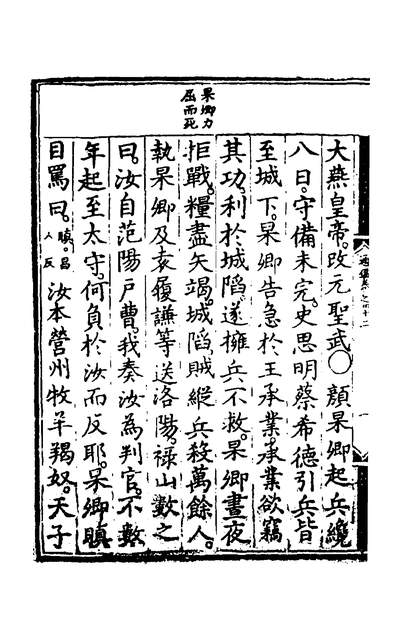 果卿力
屈而死
大燕皇帝。改元聖武〇顔杲卿起兵纔
八日。守備未完。史思明蔡希德引兵皆
至城下。杲卿告急於王承業。承業欲竊
其功。利於城陷。遂擁兵不救。杲卿晝夜
拒戰。糧盡矢竭。城陷。賊縱兵殺萬餘人。
執杲卿及袁履謙等送洛陽。祿山數之
曰。汝自范陽戶曹。我奏汝為判官。不數
年起至太守。何負於汝而反耶。杲卿瞋
目罵曰。瞋。昌人反汝本營州牧羊羯奴。天子